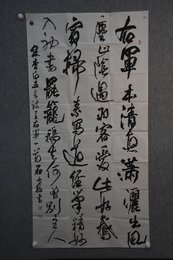 右軍本清真瀟灑出風
塵山陰過羽客愛此好鵝
賓掃素寫道經筆精妙
入神書罷籠鵝去何曾別主人
李白五言詩王右軍一首